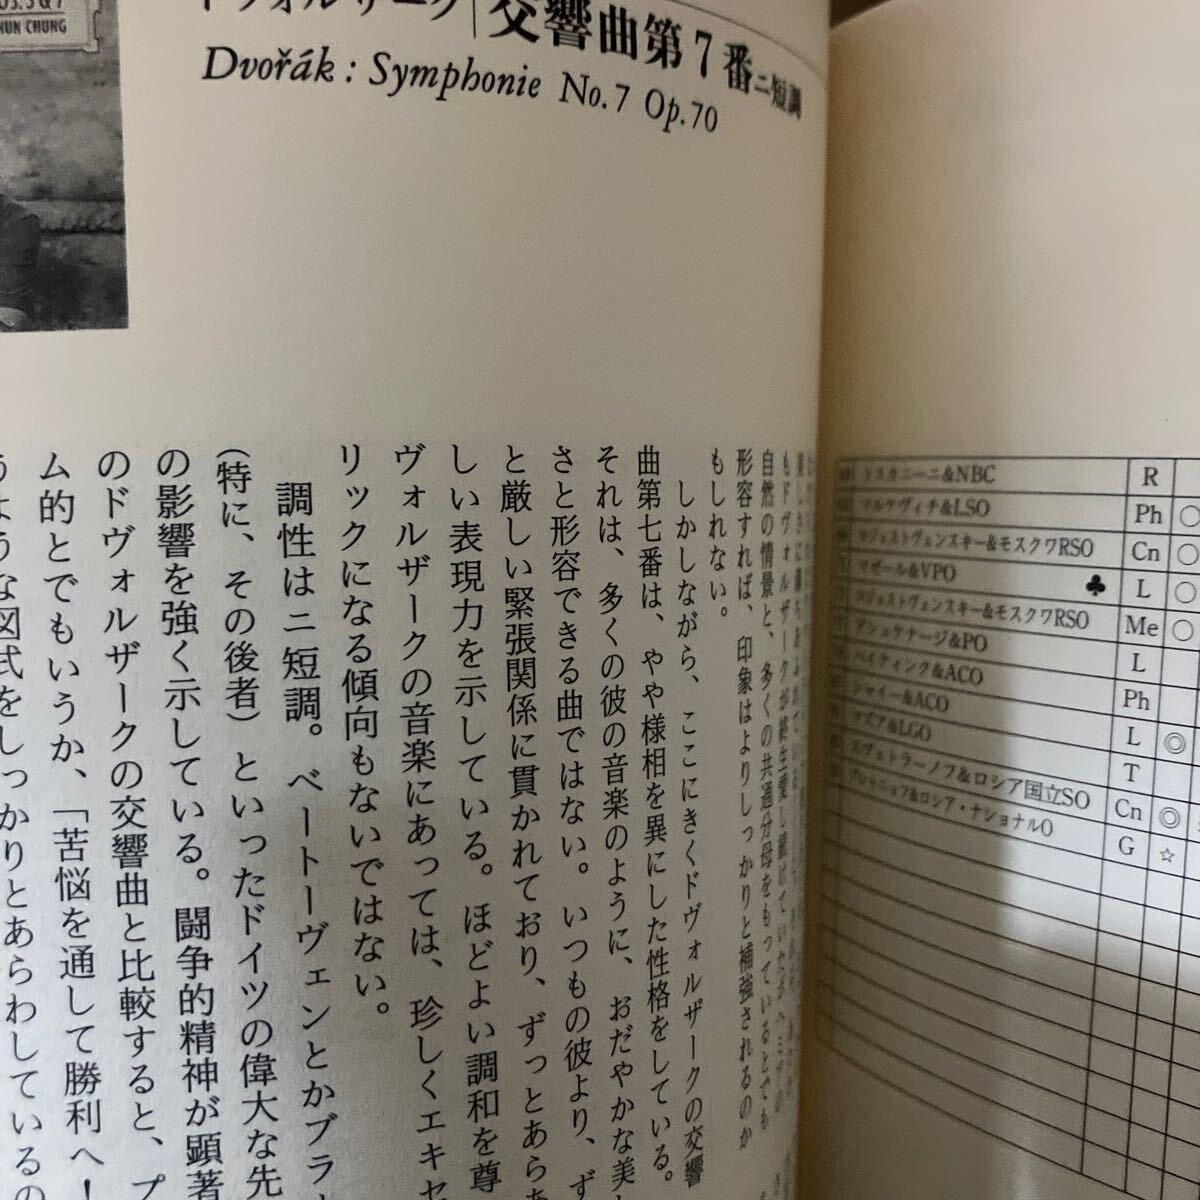 HUN CHUNG
交響曲第7番ニ短調
Dvořák : Symphonie No.7 Op.70
もドヴォルザークが終生愛し続けていた
自然の情景と、多くの共通分母をもっているとでも
形容すれば、印象はよりしっかりと補強されるのか
もしれない。
しかしながら、ここにきくドヴォルザークの交響
曲第七番は、やや様相を異にした性格をしている。
それは、多くの彼の音楽のように、おだやかな美し
さと形容できる曲ではない。いつもの彼より、ず
と厳しい緊張関係に貫かれており、ずっとあら
しい表現力を示している。ほどよい調和を尊
ヴォルザークの音楽にあっては、珍しくエキセ
リックになる傾向もないではない。
調性はニ短調。ベートーヴェンとかブラー
(特に、その後者)といったドイツの偉大な先
の影響を強く示している。闘争的精神が顕著
のドヴォルザークの交響曲と比較すると、プ
ム的とでもいうか、「苦悩を通して勝利へ!
うような図式をしっかりとあらわしているの
トスカニーニ&NBC R
マルケヴィチ&LSO Ph ○
ロジェストヴェンスキー&モスクワRSO Cn ○
マゼール&VPO ♣ L ○
ロジェストヴェンスキー&モスクワRSO Me ○
アシュケナージ&PO L
ハイティンク&ACO Ph
シャイー&ACO L ◎
マズア&LGO T
スヴェトラーノフ&ロシア国立SO Cn ◎
プレトニョフ&ロシア・ナショナルO G ☆